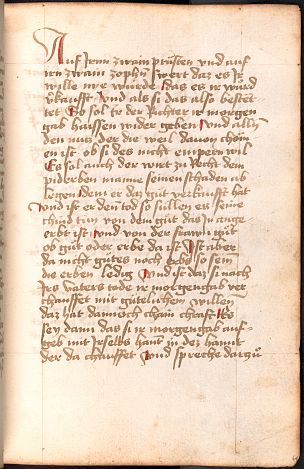 Auf Jrenn zwain prüsten vnd auf
irn zwain zophn swert daz es Jr
wille nye wurde das es ir wurd
vkaufft Vnd als si das also bestet
tet So sol ir der Richter ir morgen
gab haissen wider geben Vnd allen
den nutz der die weil dauon chom
en ist ob si des nicht empern wil
Es sol auch der wirt zu Recht dem
piderben manne seinen schaden ab
legen dem er daz gut verkaufft hat
Vnd ist er den tod so süllen es seine
chind tun von dem gut das In ange
erbt ist Vnd von der frawn gut
ob gut oder erbe da ist Ist aber
da nicht gutes noch erbs so sein
die erben ledig Vnd ist daz si nach
Jrs vaters tode ir morgengab ver
chauffet mit gütleichem willen
daz hat dannoch chain chrafft Es
sey dann das si ir morgengab auf
geb mit Jr selbs hant in dez hannt
der da chauffet Vnd spreche dartzu